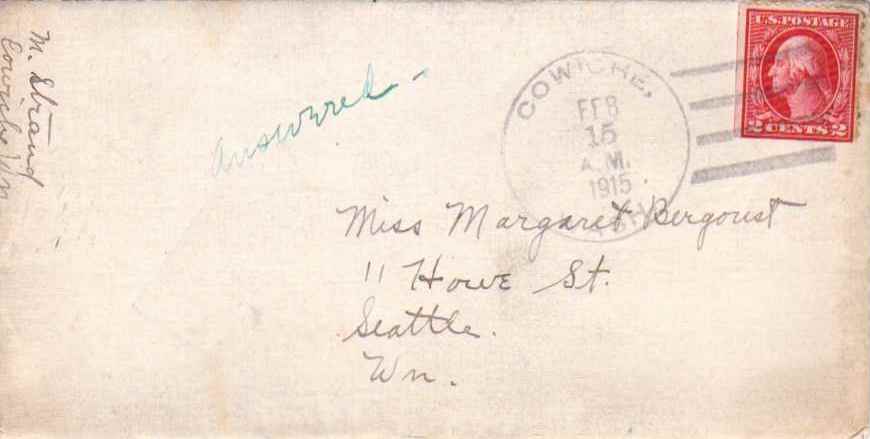 M. Strand
Cowiche Wn
Answered -
COWICHE,
FEB
15
A.M.
1915
WASH.
U.S. POSTAGE
2 CENTS 2
Miss Margaret Bergquist
11 Howe St.
Seattle.
Wn.